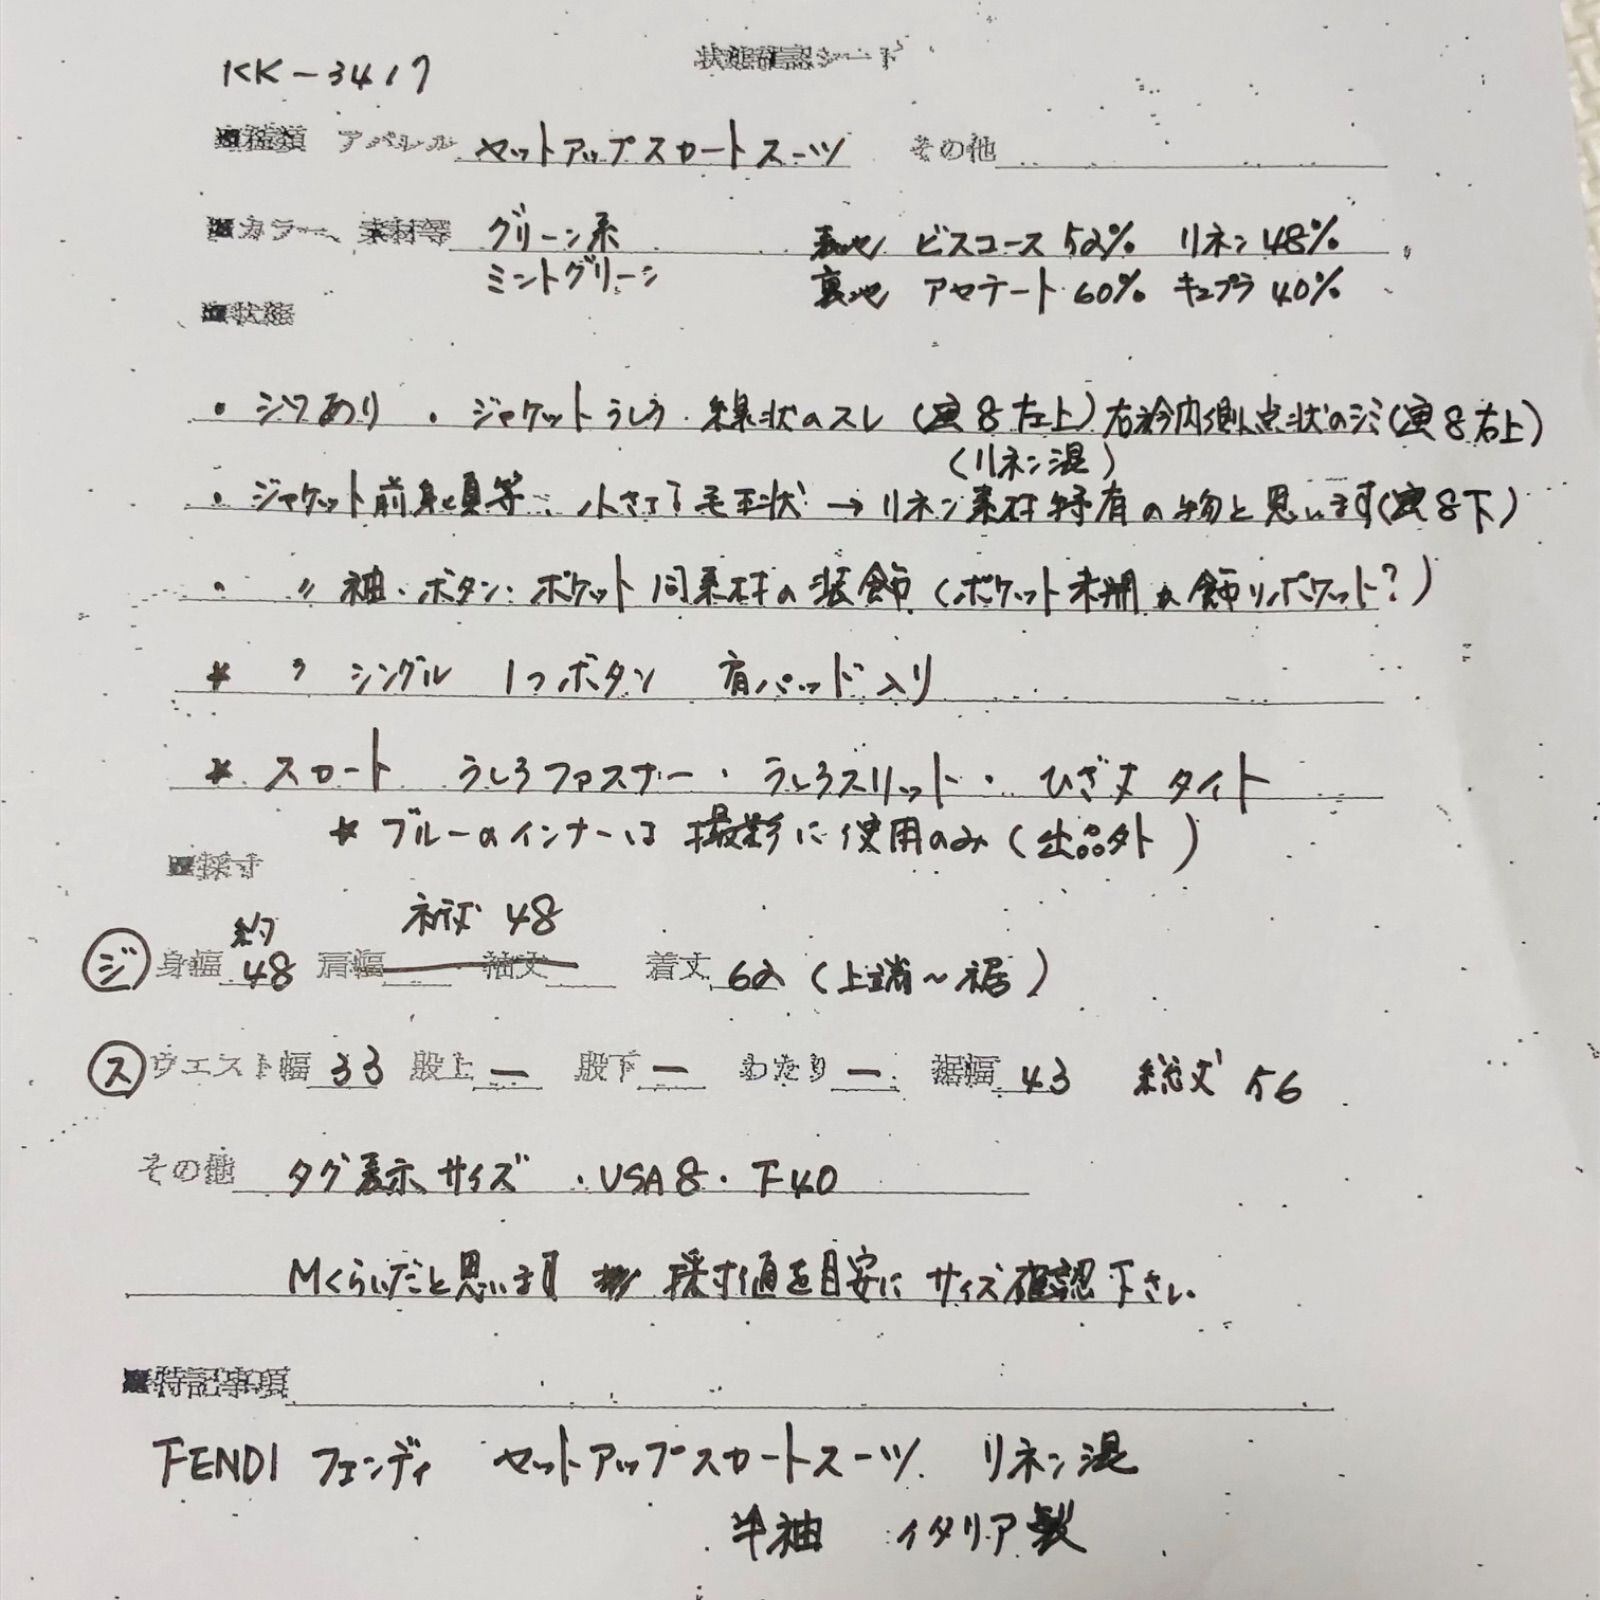 状態確認シート
KK-3417
■種類 アパレル セットアップスカートスーツ その他
■カラー、素材等 グリーン系 表地 ビスコース 52% リネン 48%
ミントグリーン 裏地 アセテート 60% キュプラ 40%
■状態
・シワあり ・ジャケットうしろ・線状のスレ(写8左上)右衿内側点状のシミ(写8右上)
(リネン混)
・ジャケット前身頃等・小さな毛玉状→リネン素材特有の物と思います(写8下)
・〃袖・ボタン・ポケット同素材の装飾(ポケット未開か飾りポケット?)
* 〃 シングル 1つボタン 肩パッド入り
* スカート うしろファスナー・うしろスリット・ひざ丈 タイト
* ブルーのインナーは撮影に使用のみ(出品外)
■採寸
約 裄丈 48
ジ 身幅 48 肩幅 袖丈 着丈 62 (上端~裾)
ス ウエスト幅 33 股上 ー 股下 ー わたり ー 裾幅 43 総丈 56
その他 タグ表示サイズ ・USA8・F40
Mくらいだと思います 採寸値を目安にサイズ確認下さい。
■特記事項
FENDI フェンディ セットアップスカートスーツ リネン混
半袖 イタリア製